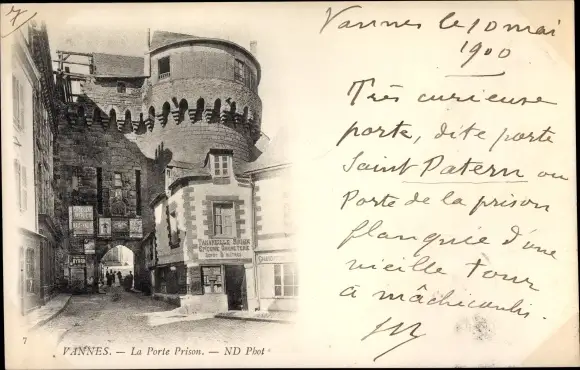 Vannes le 10 mai
1900
Très curieuse
porte, dite porte
Saint Patern ou
Porte de la prison
flanquée d'une
vieille tour
à mâchicoulis.
7
VANNES. — La Porte Prison. — ND Phot